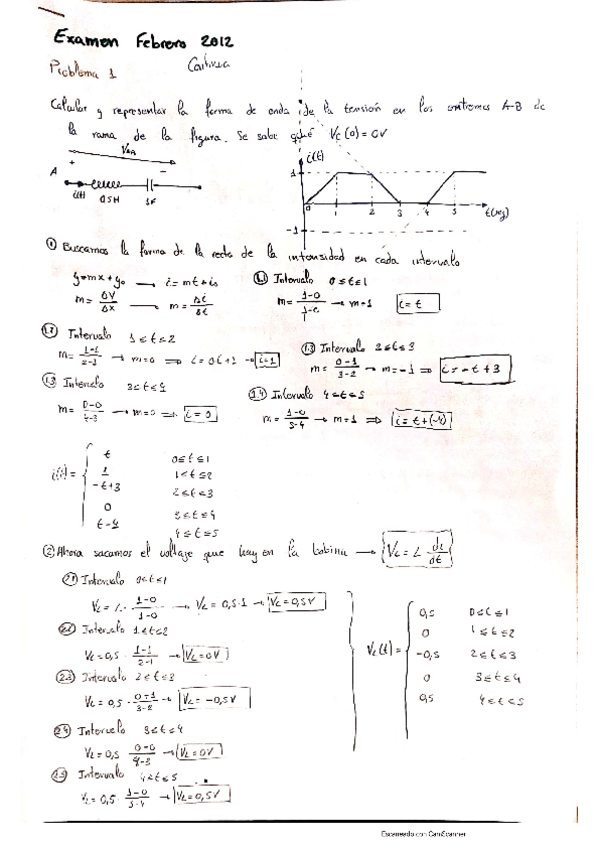 Examen Febrero 2012
Problema 1
Calcular y representar la forma de onda de la tensión en los extremos A-B de
la rama de la figura. Se sabe que Vc(0)=0V
+ -
A
i(t) 0.5H 1F
i(t)
1
0 1 2 3 4 5 t(seg)
-1
① Buscamos la forma de la recta de la intensidad en cada intervalo
y=mx+y₀ → i=mt+i₀
m= ΔV/Δx → m= Δi/Δt
Intervalo 0≤t≤1
m= → m=1 i=t
1.2 Intervalo 1≤t≤2
m= 1-1/2-1 → m=0 ⇒ i=0t+1 → i=1
1.3 Intervalo 2≤t≤3
m= 0-1/3-2 → m=-1 ⇒ i=-t+3
1.3 Intervalo 3≤t≤4
m= 0-0/4-3 → m=0 ⇒ i=0
1.4 Intervalo 4≤t≤5
m= 1-0/5-4 → m=1 ⇒ i=t+(-4)
i(t)=
t 0≤t≤1
1 1≤t≤2
-t+3 2≤t≤3
0 3≤t≤4
t-4 4≤t≤5
② Ahora sacamos el voltaje que hay en la bobina → VL = L di/dt
2.1 Intervalo 0≤t≤1
VL = L· 1-0/1-0 → VL=0,5·1 → VL=0,5V
2.2 Intervalo 1≤t≤2
VL=0,5· 1-1/2-1 → VL=0V
2.3 Intervalo 2≤t≤3
VL=0,5· 0-1/3-2 → VL=-0,5V
2.4 Intervalo 3≤t≤4
VL=0,5· 0-0/4-3 → VL=0V
2.5 Intervalo 4≤t≤5
VL=0,5· 1-0/5-4 → VL=0,5V
VL(t)=
0,5 0≤t≤1
0 1≤t≤2
-0,5 2≤t≤3
0 3≤t≤4
0,5 4≤t≤5
Escaneado con CamScanner